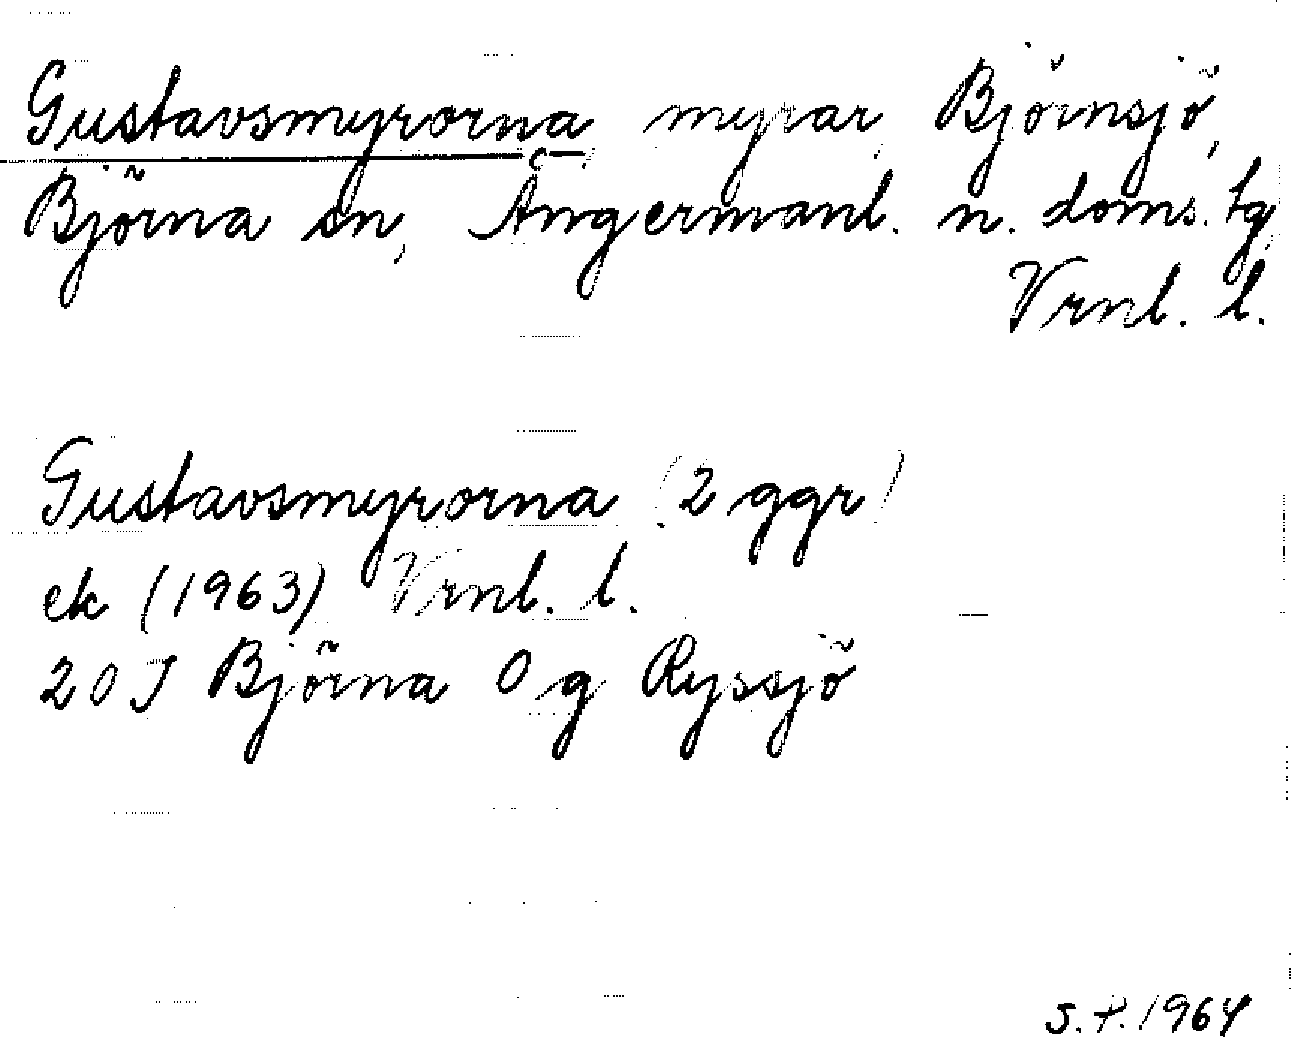 Gustavsmyrorna, myrar, Björnsjö,
Björna sn, Ångermanl. n. doms. tg
Vrnl. l.
Gustavsmyrorna (2 ggr)
ek (1963) Vrnl. l.
20J Björna 0g Ryssjö
S.P. 1964